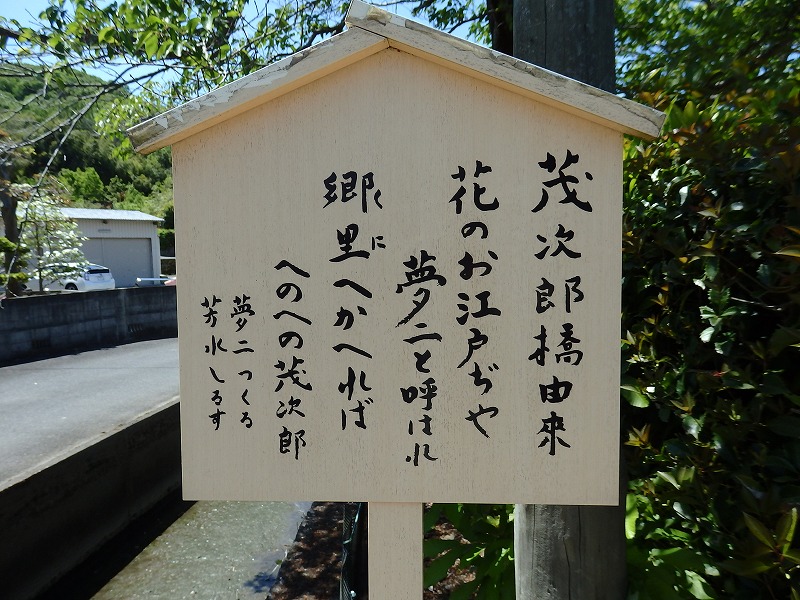 茂次郎橋由来
花のお江戸ぢや
夢二と呼はれ
郷里へかへれば
くに
へのへの茂次郎
夢二つくる
芳水しるす